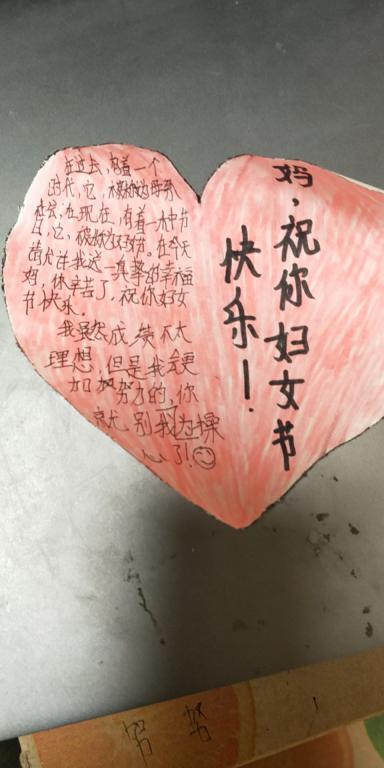 妈,祝你妇女节
快乐!
在过去,有着一个
时代,它,被称为母系
社会,在现在,有着一种节
日,它,被称为妇女节。在今天
请允许我这一真挚的幸福
妈,你辛苦了,祝你妇女
节快乐。
我虽然成绩不太
理想,但是我会更
加努力的,你
就别为我操
心了!